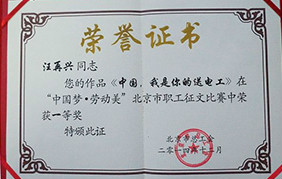 荣誉证书
汪再兴同志
您的作品《中国,我是你的送电工》在
“中国梦·劳动美”北京市职工征文比赛中荣
获一等奖
特颁此证
北京市总工会
二〇一四年七月